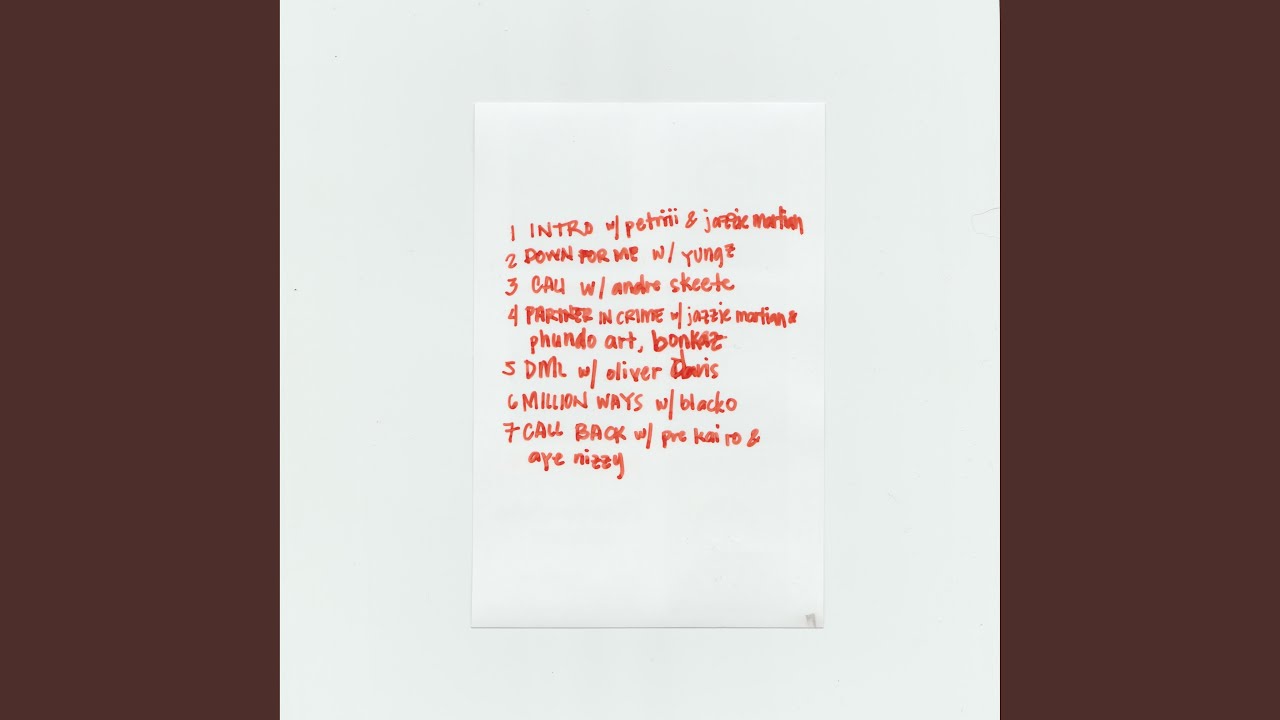 1 INTRO w/ petriiii & jazzie martian
2 DOWN FOR ME w/ yungz
3 CALI w/ andre skeete
4 PARTNER IN CRIME w/ jazzie martian &
phundo art, bonkaz
5 DML w/ oliver Davis
6 MILLION WAYS w/ blacko
7 CALL BACK w/ pre kai ro &
aye nizzy